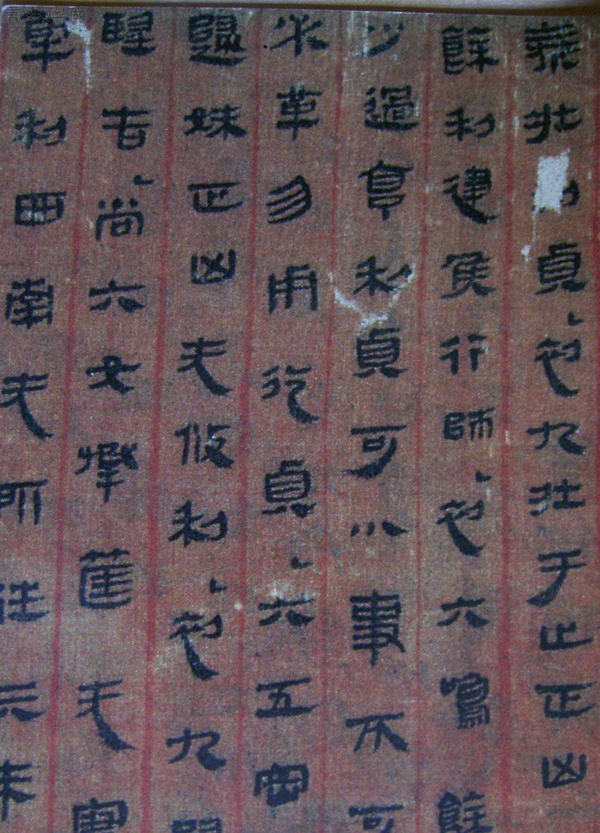 泰壯貞初九壯于止正凶
餘利建侯行師初六鳴餘
少過亨利貞可小事不可
必革勿用永貞六五密
歸妹正凶无攸利初九歸
朢吉尚六女承筐无實
解利西南无所往亓來